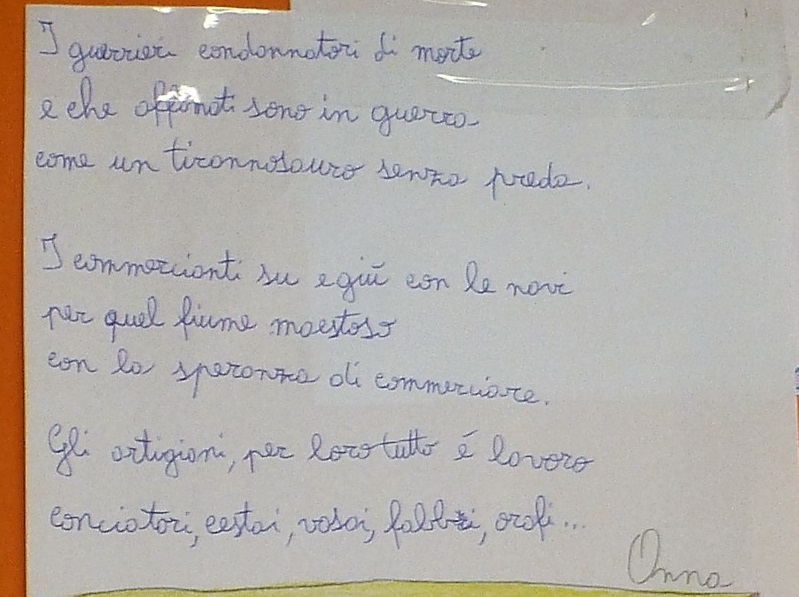 I guerrieri condannatori di morte
e che affamati sono in guerra
come un tirannosauro senza preda.
I commercianti su e giù con le navi
per quel fiume maestoso
con la speranza di commerciare.
Gli artigiani, per loro tutto é lavoro
conciatori, cestai, vasai, fabbri, orafi...
Anna